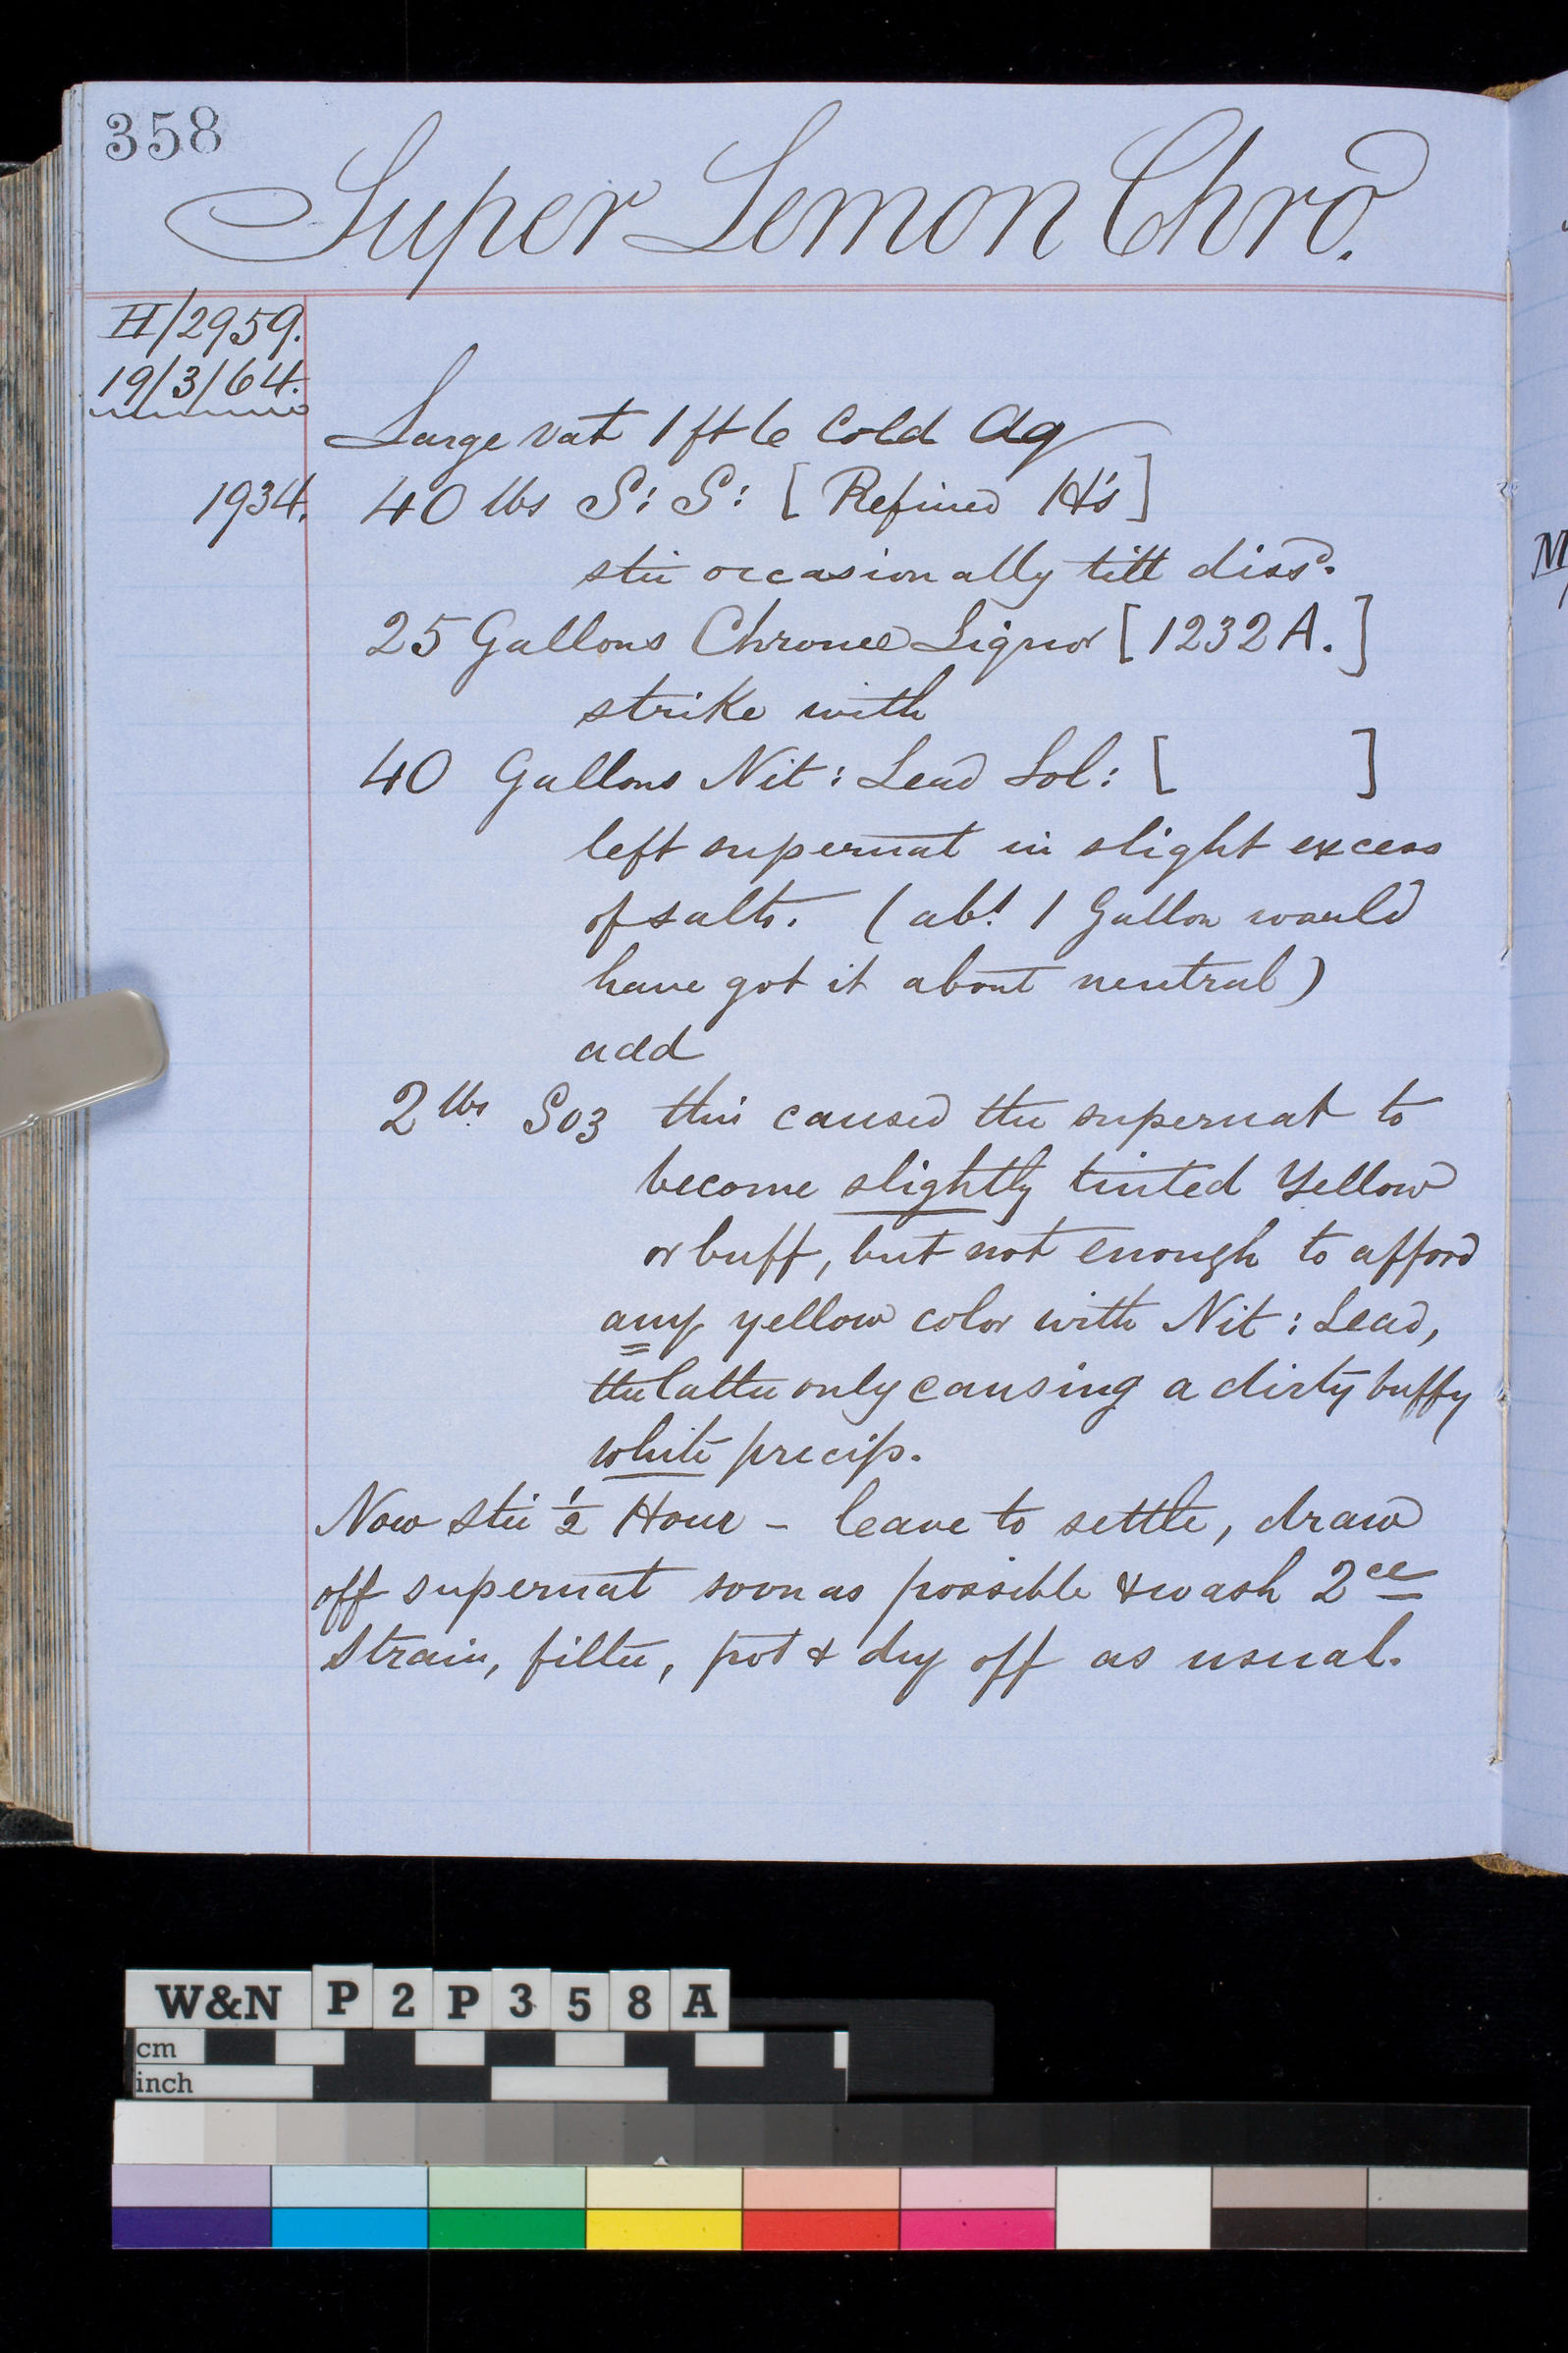 358
Super Lemon Chro.
H/2959.
19/3/64.
Large vat 1 ft 6 Cold Aq
1934. 40 lbs S: S: [ Refined H's ]
stir occasionally till dissd.
25 Gallons Chrome Liquor [ 1232 A. ]
strike with
40 Gallons Nit: Lead Sol: [ ]
left supernat in slight excess
of salts. ( abt 1 Gallon would
have got it about neutral )
add
2 lbs SO3 this caused the supernat to
become slightly tinted Yellow
or buff, but not enough to afford
any yellow color with Nit: Lead,
the latter only causing a dirty buffy
white precip.
Now stir ½ Hour - leave to settle, draw
off supernat soon as possible & wash 2ce
Strain, filter, pot & dry off as usual.
M
W&N P2P358A
cm
inch